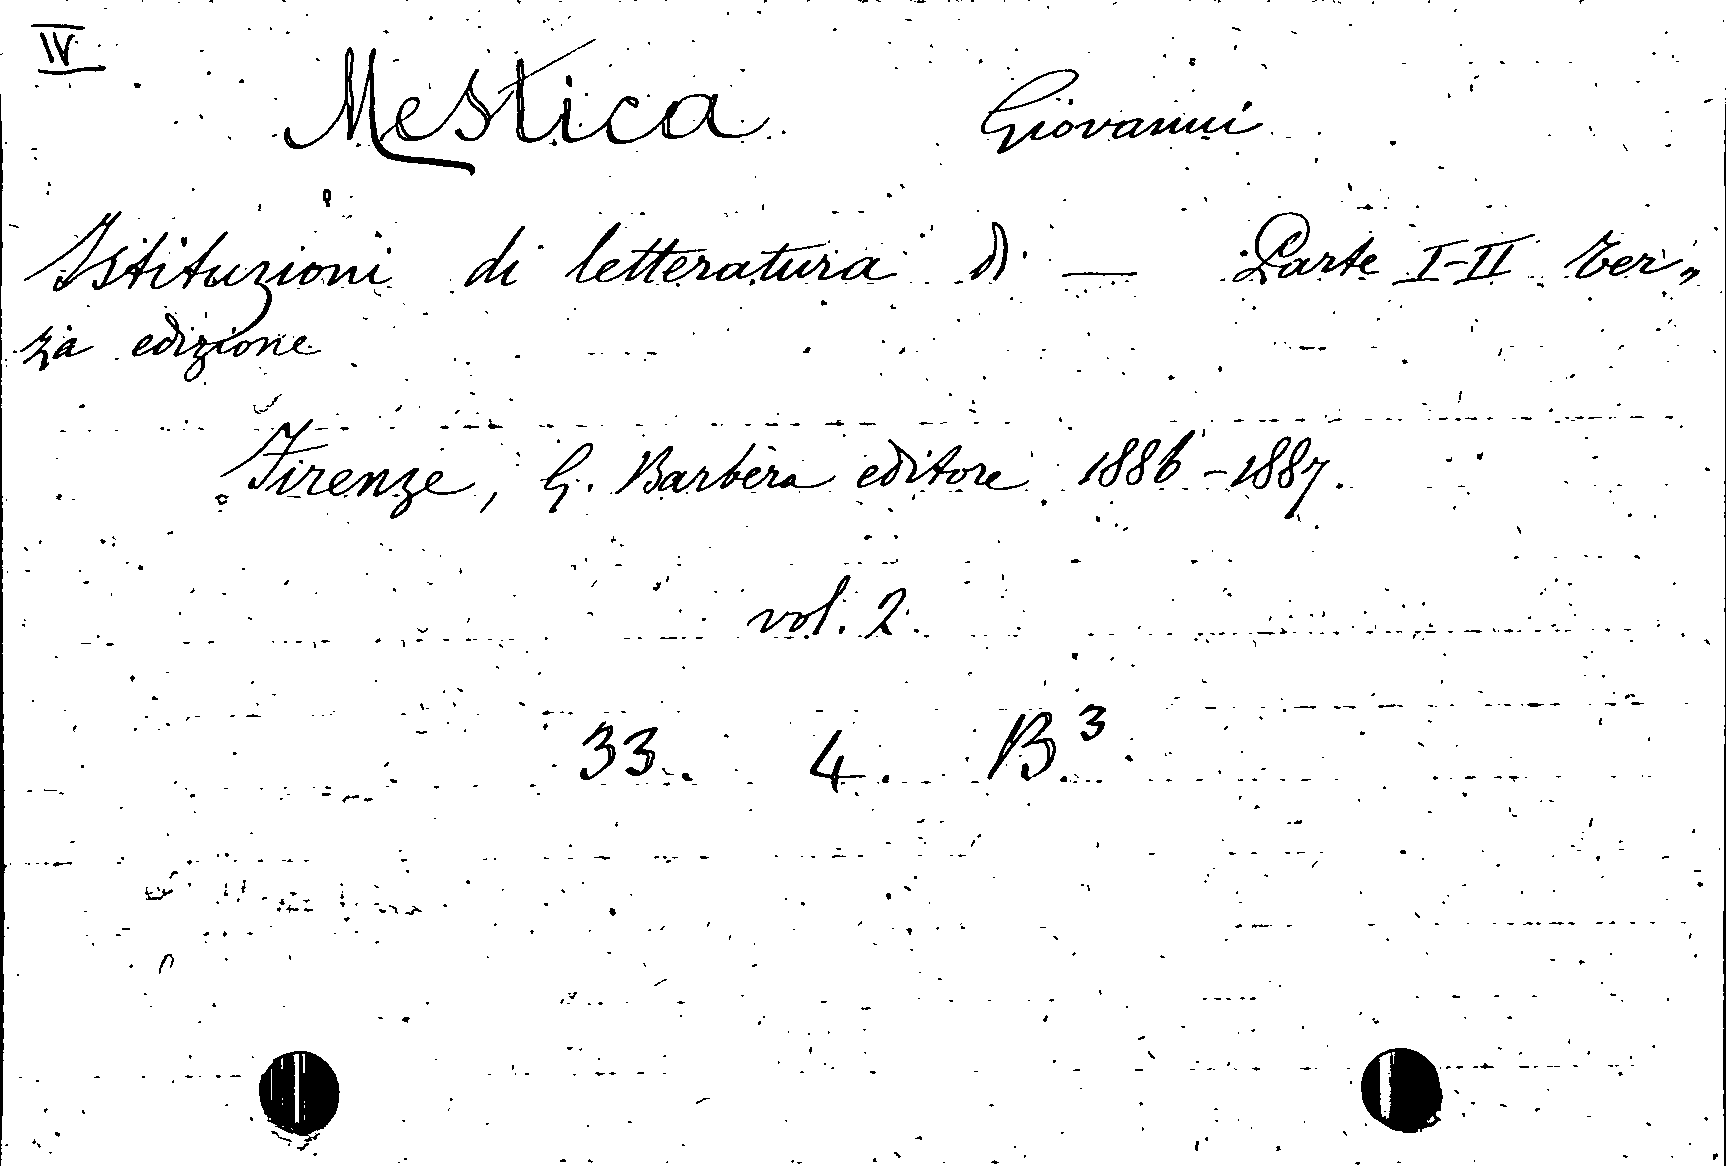 IV
Mestica Giovanni
Istituzioni di letteratura di — Parte I-II Ter„
za edizione
Firenze, G. Barbèra editore 1886-1887.
vol. 2.
33. 4. B³.